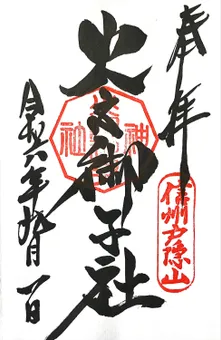 奉拝
信州戸隠山
火之御子社
令和六年九月一日